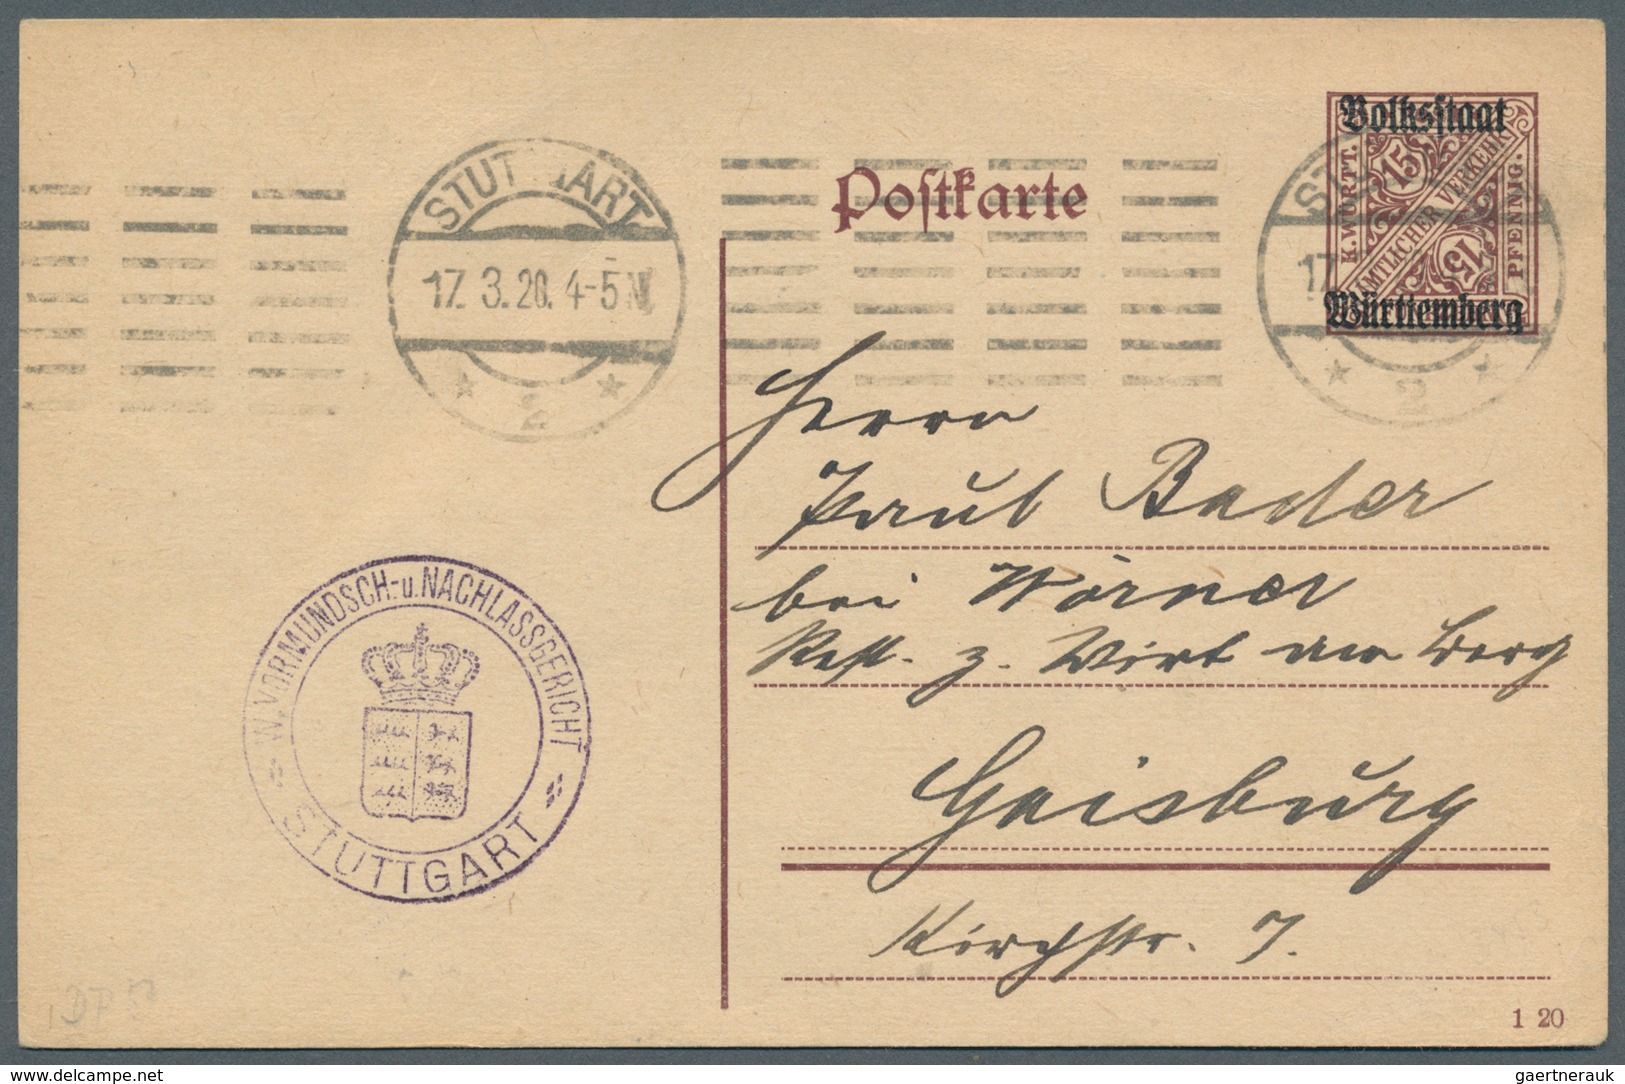 Volksstaat
K. WÜRTT.
15
AMTLICHER VERKEHR
15
PFENNIG.
Württemberg
Postkarte
STUTTGART
17. 3. 20. 4-5 N.
2.
17
2
Herrn
Paul Bader
bei Wörner
Rest. z. Wirt am Berg
Gaisburg
Kirchstr. 7.
W. VORMUNDSCH.- u. NACHLASSGERICHT
STUTTGART
1 20
www.delcampe.net
gaertnerauk